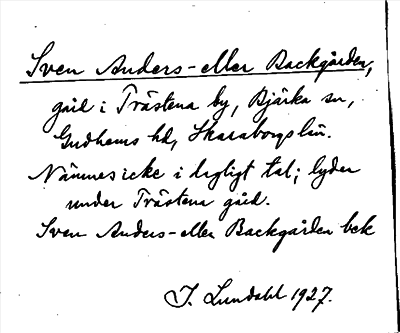 Sven Anders- eller Backgården,
gård i Trästena by, Bjärka sn,
Gudhems hd, Skaraborgs län.
Nämnes icke i dagligt tal; lyder
under Trästena gård.
Sven Anders- eller Backgården bek
I. Lundahl 1927.